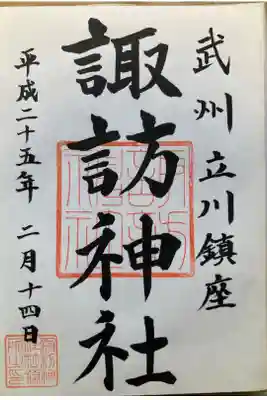 武州立川鎮座
諏訪神社
平成二十五年 二月十四日